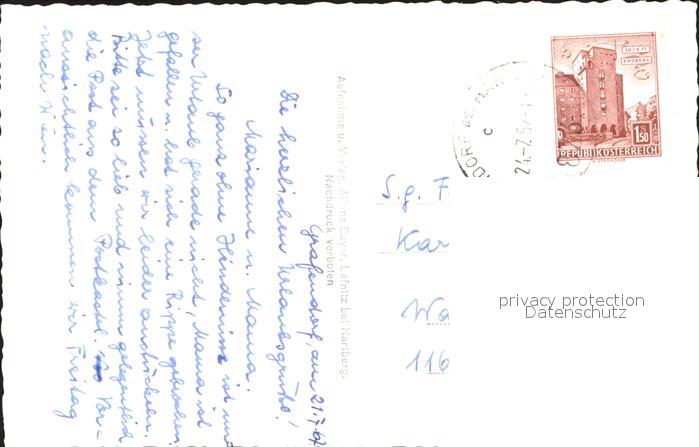 Grafendorf, am 21.7.6
Die herzlichen Urlaubsgrüße!
Marianne u. Mama.
So ganz ohne Hindernisse ist un
ser Urlaub gerade nicht, Mama ist
gefallen u. hat sich eine Rippe gebrochen.
Jetzt müssen wir leider
Bitte sei so lieb und nimm gelegentlich
die Post aus dem Postkastl. Vor-
aussichtlich kommen wir Freitag
nach Wien.
Aufnahme u. Verlag Alfons Bayer, Lafnitz bei Hartberg.
Nachdruck verboten
WIEN
ERDBERG
1.50
REPUBLIK ÖSTERREICH
DORF
c
24.-7.6
S.g. F
Kar
Wa
116
privacy protection
Datenschutz